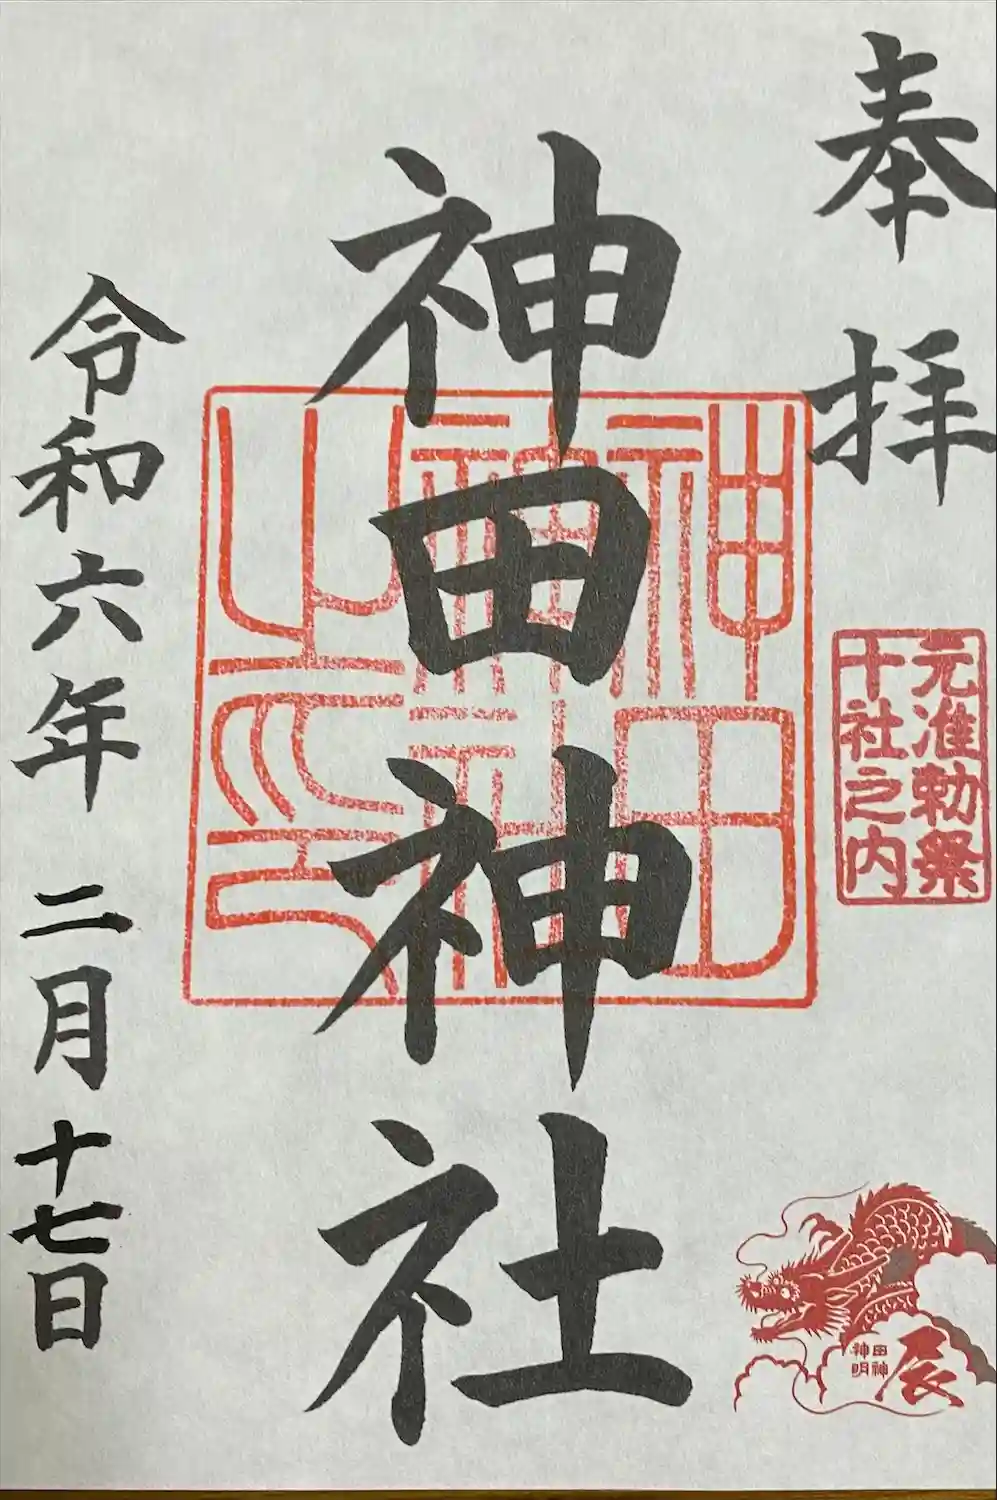 奉拝
元准勅祭
十社之内
神田神社
神田神社之印
辰
神田神明
令和六年二月十七日